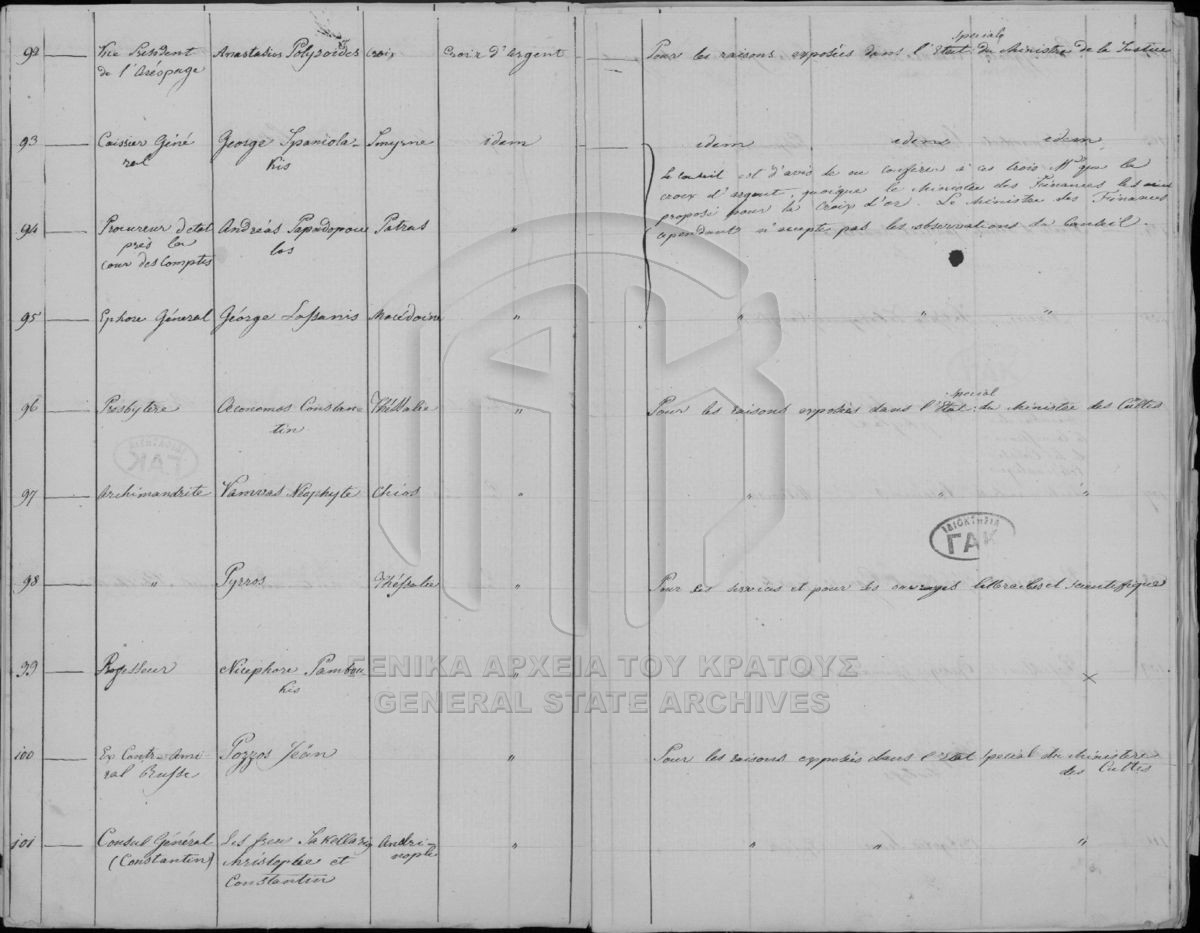 92 Vice Président Anastasius Polyzoides Croix d'Argent Pour les raisons exposées dans l'Etat Special du Ministre de la Justice
de l'Aréopage
93 Caissier Géné George Spaniola- Smyrne idem idem idem idem
ral kis
Le Conseil est d'avis de ne conférer à ces trois Mrs que la
croix d'argent, quoique le Ministre des Finances les
proposé pour la Croix d'or. Le Ministre des Finances
94 Procureur d'etat Andréas Papadopou Patras " cependant n'accepte pas les observations du Conseil.
près la los
cour des Comptes
95 Ephore Général Géorge Lassanis Macédoine " " " "
96 Presbytère Oeconomos Constan- Théssalie " Pour les raisons exposées dans l'Etat Special du Ministre des Cultes
tin
97 Archimandrite Vamvas Néophyte Chios " " " "
ΙΔΙΟΚΤΗΣΙΑ
ΓΑΚ
98 " Pyrros Théssalie " Pour ses services et pour ses ouvrages litteraires et scientifiques
99 Professeur Nicephore Pambou "
kis
ΓΕΝΙΚΑ ΑΡΧΕΙΑ ΤΟΥ ΚΡΑΤΟΥΣ
GENERAL STATE ARCHIVES
100 Ex Contre-Ami- Pozzos Jean " Pour les raisons exposées dans l'Etat Special du Ministere
ral Russe des Cultes
101 Consul Général Les freu Sakellario Andri- " " " "
(Constantin) Christophe et nople
Constantin